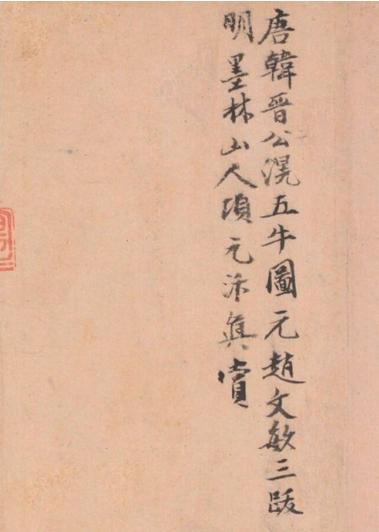 唐韓晉公滉五牛圖元趙文敏三跋
明墨林山人項元汴真賞